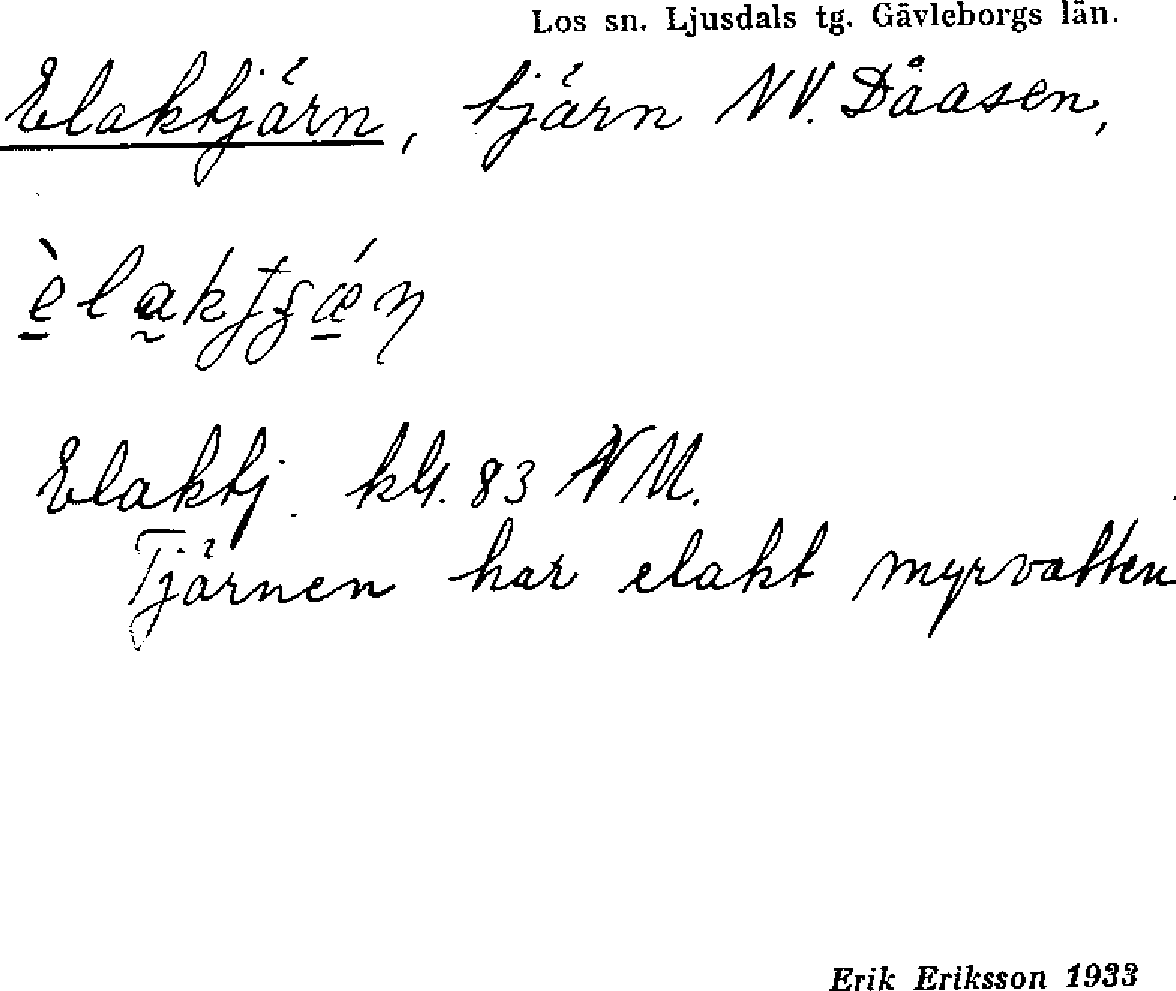 Los sn. Ljusdals tg. Gävleborgs län.
Elaktjärn, tjärn NV. Dåasen,
èlaktjǽn
Elaktj. kbl. 83 NM.
Tjärnen har elakt myrvatten
Erik Eriksson 1933